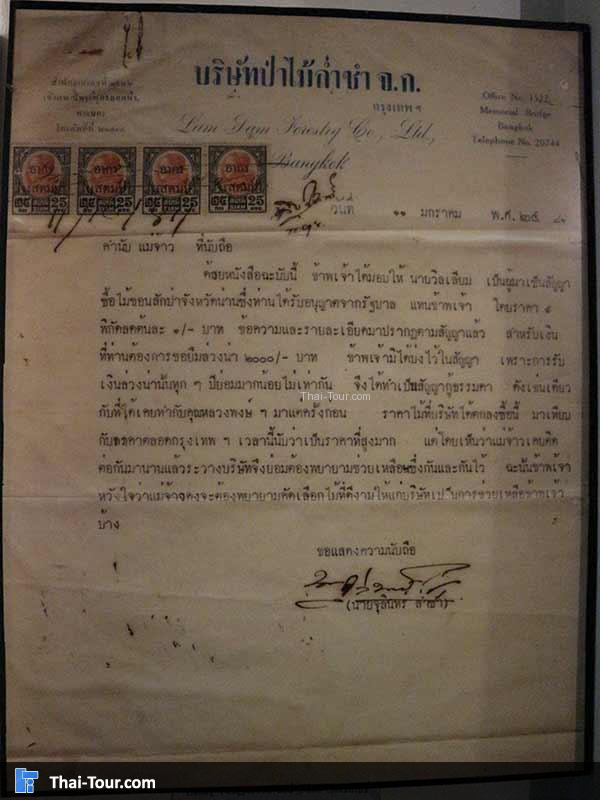 บริษัทป่าไม้ล่ำซำ จ.ก.
กรุงเทพ ฯ
Lam Sam Forestry Co., Ltd.,
Bangkok
Office No. 1522
Memorial Bridge
Bangkok
Telephone No. 20744
โทรศัพท์ที่
อากร อากร อากร อากร
แสตมป์ แสตมป์ แสตมป์ แสตมป์
๒๕ 25 ๒๕ 25 ๒๕ 25 ๒๕ 25
วันที่ ๑๑ มกราคม พ.ศ. ๒๔
คำนับ แม่จ้าว ที่นับถือ
ด้วยหนังสือฉะบับนี้ ข้าพเจ้าได้มอบให้ นายวิลเลียม เป็นผู้มาเซ็นสัญญา
ซื้อไม้ขอนสักป่าจังหวัดน่านซึ่งท่านได้รับอนุญาตจากรัฐบาล แทนข้าพเจ้า โดยราคา
พิกัดลดต้นละ ๑/- บาท ข้อความและรายละเอียดมาปรากฏตามสัญญาแล้ว สำหรับเงิน
ที่ท่านต้องการขอยืมล่วงน่า ๒๐๐๐/- บาท ข้าพเจ้ามิได้บ่งไว้ในสัญญา เพราะการรับ
เงินล่วงน่านั้นทุก ๆ ปีย่อมมากน้อยไม่เท่ากัน จึงได้ทำเป็นสัญญากู้ธรรมดา ดังเช่นเดียว
กับที่ได้เคยทำกับคุณหลวงพงษ์ ฯ มาแต่ครั้งก่อน ราคาไม้ที่บริษัทได้ตกลงซื้อนี้ มาเทียบ
กับราคาตลอดกรุงเทพ ฯ เวลานี้นับว่าเป็นราคาที่สูงมาก แต่โดยเห็นว่าแม่จ้าวเคยติด
ต่อกันมานานแล้วระวางบริษัทจึงย่อมต้องพยายามช่วยเหลือซึ่งกันและกันไว้ ฉะนั้นข้าพเจ้า
หวังใจว่าแม่จ้าวคงจะต้องพยายามคัดเลือกไม้ที่ดีงามให้แก่บริษัทเป็นการช่วยเหลือข้าพเจ้า
บ้าง
ขอแสดงความนับถือ
(นายจุลินทร ล่ำซำ)
Thai-Tour.com
Thai-Tour.com